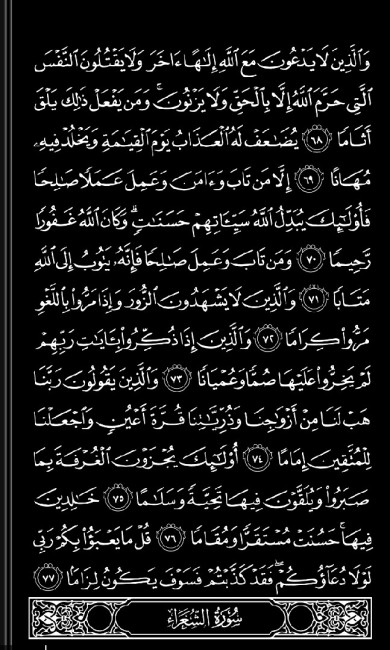 وَالَّذِينَ لَا يَدْعُونَ مَعَ اللَّهِ إِلَٰهًا ءَاخَرَ وَلَا يَقْتُلُونَ النَّفْسَ
الَّتِي حَرَّمَ اللَّهُ إِلَّا بِالْحَقِّ وَلَا يَزْنُونَ ۚ وَمَن يَفْعَلْ ذَٰلِكَ يَلْقَ
أَثَامًا ٦٨ يُضَاعَفْ لَهُ الْعَذَابُ يَوْمَ الْقِيَامَةِ وَيَخْلُدْ فِيهِ
مُهَانًا ٦٩ إِلَّا مَن تَابَ وَءَامَنَ وَعَمِلَ عَمَلًا صَالِحًا
فَأُولَٰئِكَ يُبَدِّلُ اللَّهُ سَيِّـَٔاتِهِمْ حَسَنَاتٍ ۗ وَكَانَ اللَّهُ غَفُورًا
رَّحِيمًا ٧٠ وَمَن تَابَ وَعَمِلَ صَالِحًا فَإِنَّهُ يَتُوبُ إِلَى اللَّهِ
مَتَابًا ٧١ وَالَّذِينَ لَا يَشْهَدُونَ الزُّورَ وَإِذَا مَرُّوا بِاللَّغْوِ
مَرُّوا كِرَامًا ٧٢ وَالَّذِينَ إِذَا ذُكِّرُوا بِـَٔايَاتِ رَبِّهِمْ
لَمْ يَخِرُّوا عَلَيْهَا صُمًّا وَعُمْيَانًا ٧٣ وَالَّذِينَ يَقُولُونَ رَبَّنَا
هَبْ لَنَا مِنْ أَزْوَاجِنَا وَذُرِّيَّاتِنَا قُرَّةَ أَعْيُنٍ وَاجْعَلْنَا
لِلْمُتَّقِينَ إِمَامًا ٧٤ أُولَٰئِكَ يُجْزَوْنَ الْغُرْفَةَ بِمَا
صَبَرُوا وَيُلَقَّوْنَ فِيهَا تَحِيَّةً وَسَلَامًا ٧٥ خَالِدِينَ
فِيهَا ۚ حَسُنَتْ مُسْتَقَرًّا وَمُقَامًا ٧٦ قُلْ مَا يَعْبَؤُا بِكُمْ رَبِّي
لَوْلَا دُعَاؤُكُمْ ۖ فَقَدْ كَذَّبْتُمْ فَسَوْفَ يَكُونُ لِزَامًا ٧٧
سُورَةُ الشُّعَرَاءِ